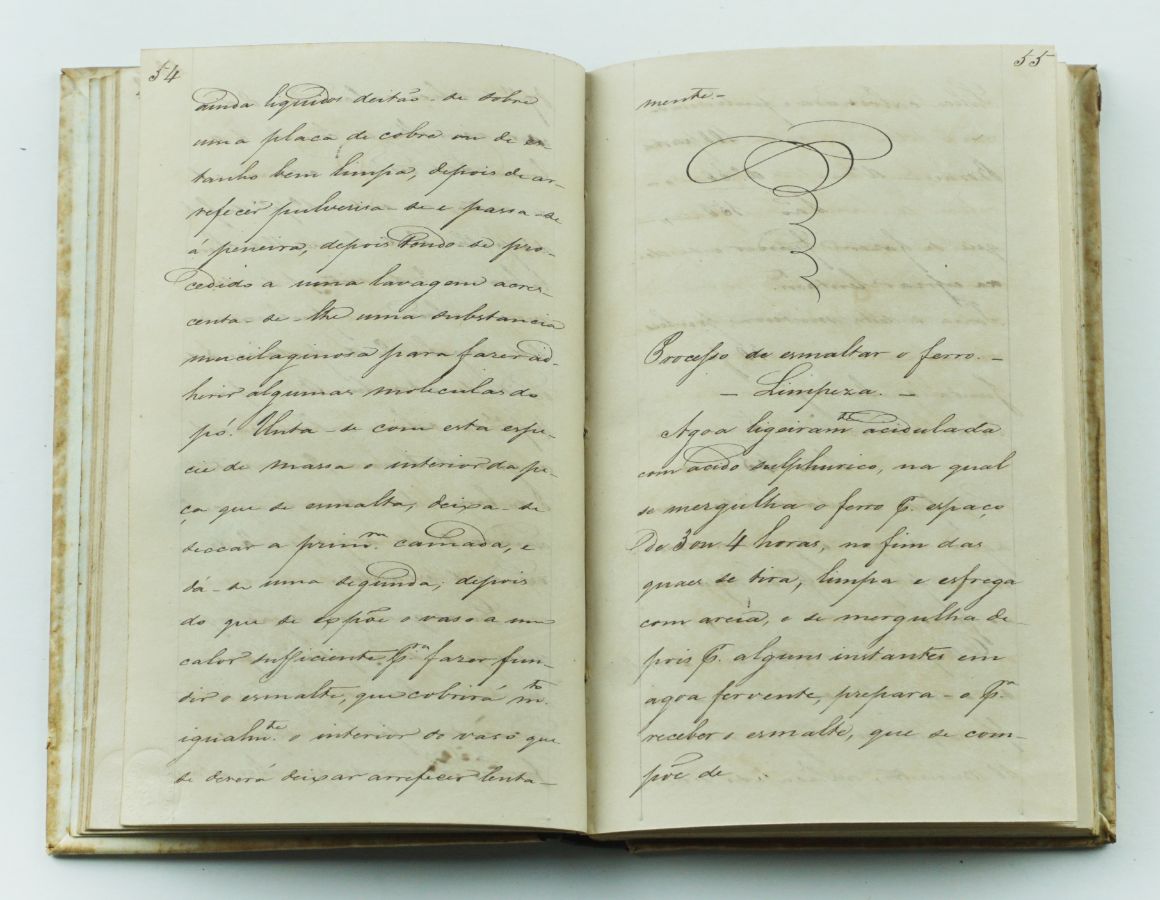 54
ainda liquidos deitão-se sobre
uma placa de cobre ou de es-
tanho bem limpa, depois de ar-
refecer pulverisa-se e passa-se
á peneira, depois tendo-se pro-
cedido a uma lavagem acres-
centa-se-lhe uma substancia
mucilaginosa para fazer ad-
herir algumas moleculas do
pó. Unta-se com esta espe-
cie de massa o interior da pe-
ça que se esmalta, deixa-se
seccar a prim.ra camada, e
dá-se uma segunda; depois
do que se expõe o vaso a um
calor sufficiente p.a fazer fun-
dir o esmalte, que cobrirá m.to
igualm.te o interior do vaso que
se deverá deixar arrefecer lenta-
55
mente-
Processo de esmaltar o ferro.-
- Limpeza. -
Agoa ligeiram.te acidulada
com acido sulphurico, na qual
se mergulha o ferro p. espaço
de 3 ou 4 horas, no fim das
quaes se tira, limpa e esfrega
com areia, e se mergulha de-
pois p. alguns instantes em
agoa fervente, prepara-o p.a
receber o esmalte, que se com-
põe de